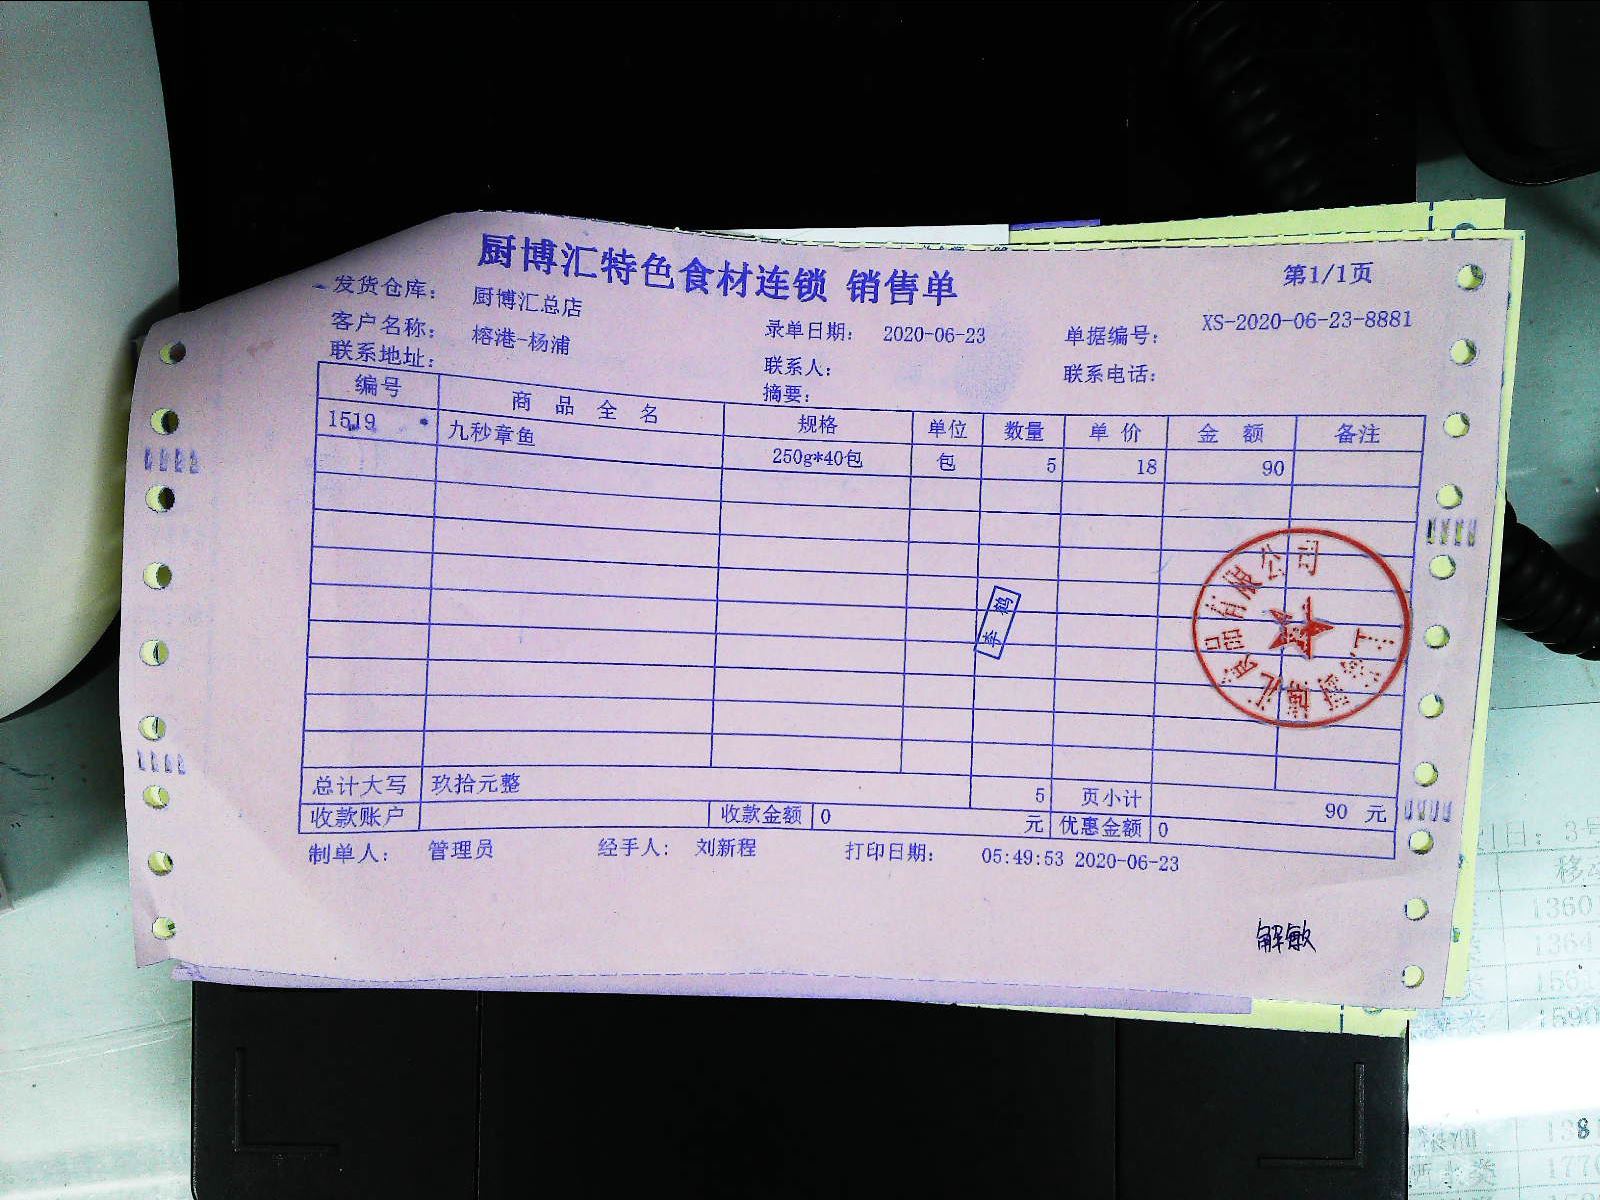 厨博汇特色食材连锁 销售单
第1/1页
发货仓库： 厨博汇总店
客户名称： 榕港-杨浦 录单日期： 2020-06-23 单据编号： XS-2020-06-23-8881
联系地址： 联系人： 联系电话：
摘要：
编号 商品全名 规格 单位 数量 单价 金额 备注
1519 九秒章鱼 250g*40包 包 5 18 90
李鹤
上海厨博汇食品有限公司
总计大写 玖拾元整 5 页小计 90 元
收款账户 收款金额 0 元 优惠金额 0
制单人： 管理员 经手人： 刘新程 打印日期： 05:49:53 2020-06-23
解敏